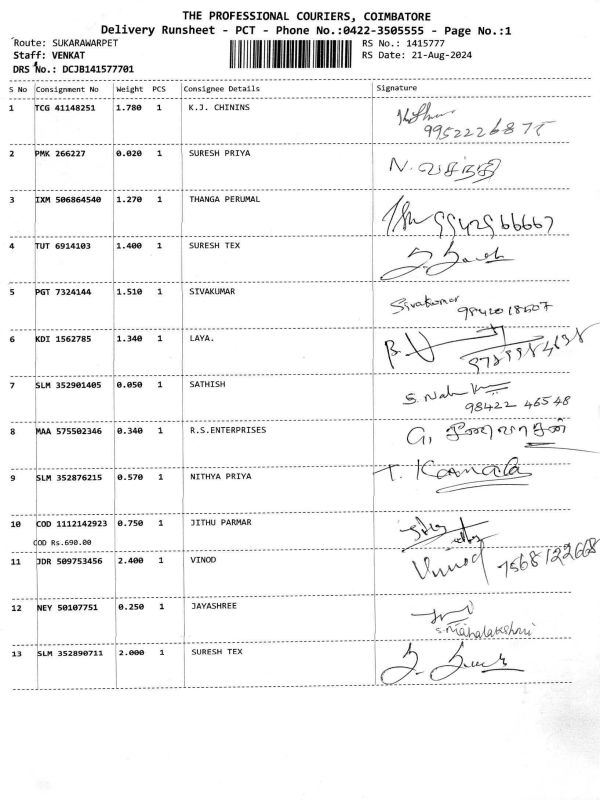 THE PROFESSIONAL COURIERS, COIMBATORE
Delivery Runsheet - PCT - Phone No.:0422-3505555 - Page No.:1
Route: SUKARAWARPET RS No.: 1415777
Staff: VENKAT RS Date: 21-Aug-2024
DRS No.: DCJB141577701
S No Consignment No Weight PCS Consignee Details Signature
1 TCG 41148251 1.780 1 K.J. CHININS
9952226875
2 PMK 266227 0.020 1 SURESH PRIYA N. வசந்தி
3 IXM 506864540 1.270 1 THANGA PERUMAL 9942966667
4 TUT 6914103 1.400 1 SURESH TEX
5 PGT 7324144 1.510 1 SIVAKUMAR Sivakumar
9842018507
6 KDI 1562785 1.340 1 LAYA.
7 SLM 352901405 0.050 1 SATHISH
98422 46548
8 MAA 575502346 0.340 1 R.S.ENTERPRISES G.
9 SLM 352876215 0.570 1 NITHYA PRIYA T. Kamala
10 COD 1112142923 0.750 1 JITHU PARMAR
COD Rs.690.00
11 JDR 509753456 2.400 1 VINOD Vinod 7568122668
12 NEY 50107751 0.250 1 JAYASHREE
S.Mahalakshmi
13 SLM 352890711 2.000 1 SURESH TEX